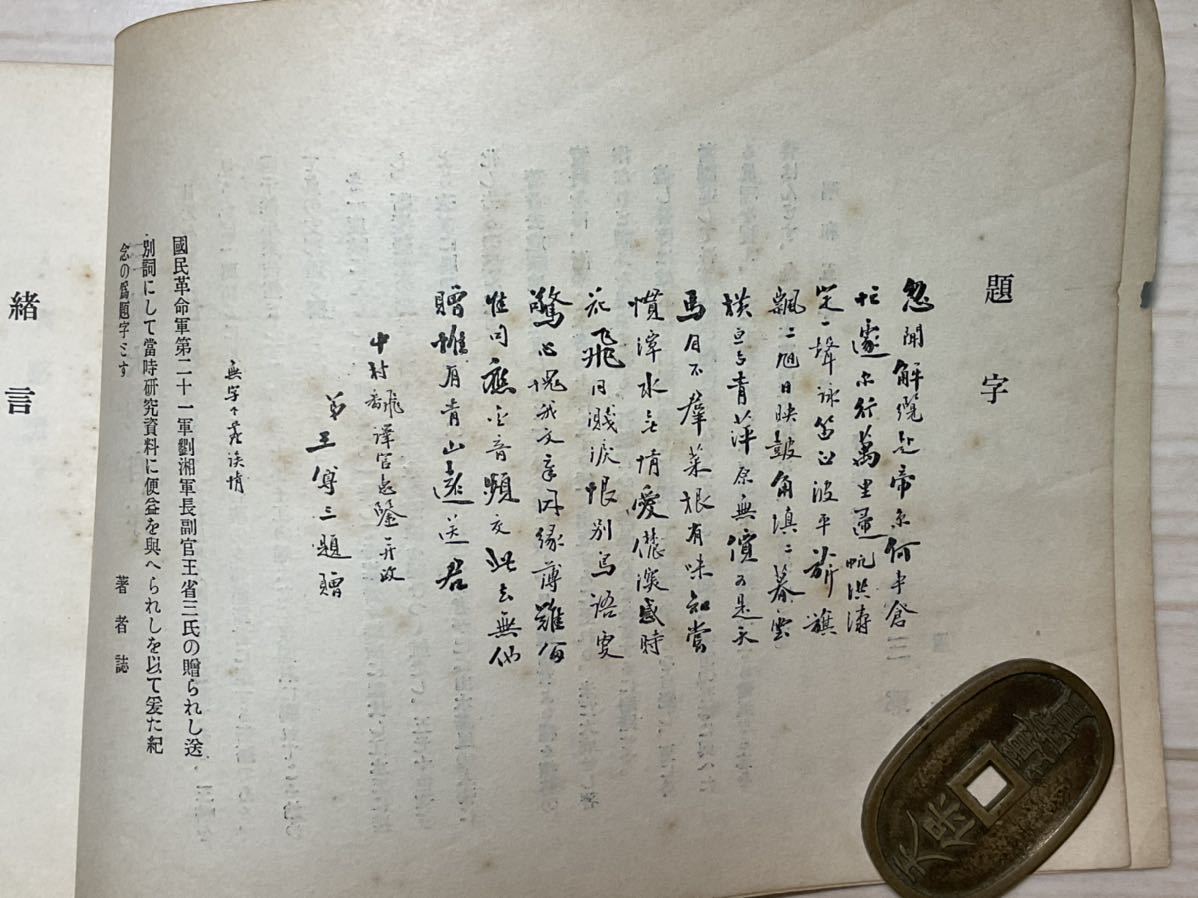 題字
忽聞解纜赴帝京何事倉
忙遽尓行萬里畫帆洪濤
一聲詠笛江波平旂旗
飄〻旭日映鼓角填〻暮雲
橫亘与青萍原無價又是天
馬自不羣菜根有味知嘗
慣潭水無情愛儂深感時
花飛同濺淚恨別鳥語更
驚心愧我文章因緣薄雖每
惟同應音頻交此去無他
贈惟有青山遠送君
中村飜譯官惠鑒并政
弟王傅三題贈
無字下落淡情
國民革命軍第二十一軍劉湘軍長副官王省三氏の贈られし送
別詞にして當時研究資料に便益を與へられしを以て爰た紀
念の爲題字とす
著者誌
緒言
天保
當百